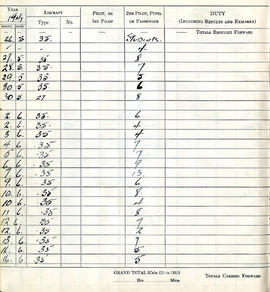 YEAR AIRCRAFT PILOT, OR 1ST PILOT 2ND PILOT, PUPIL OR PASSENGER DUTY (INCLUDING RESULTS AND REMARKS)
MONTH DATE Type No.
TOTALS BROUGHT FORWARD
26 5 35 Students
4
27 5 35 8
28 5 35 7
29 5 35 5
30 5 35 6
30 5 27 8
2 6 35 6
2 6 35 4
3 6 35 4
4 6 35 7
5 6 35 7
6 6 35 9
7 6 35 13
9 6 35 6
10 6 35 8
10 6 35 4
11 6 35 8
12 6 35 7
12 6 35 2
13 6 35 7
16 6 35 5
16 6 35 5
GRAND TOTAL [Cols (1) to (10)]
Hrs Mins
TOTALS CARRIED FORWARD